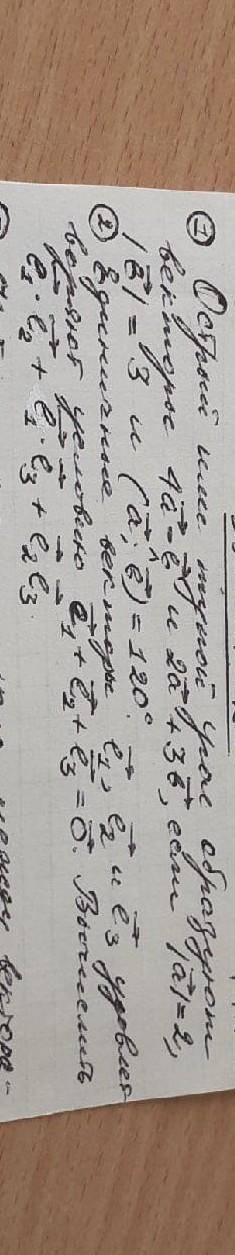 ① Острый или тупой угол образуют
векторы 4a⃗-b⃗ и 2a⃗+3b⃗, если |a⃗|=2,
|b⃗|=3 и (a⃗;^b⃗)=120°.
② Единичные векторы e⃗₁, e⃗₂ и e⃗₃ удовле-
творяют условию e⃗₁+e⃗₂+e⃗₃=0⃗. Вычислить
e⃗₁·e⃗₂+e⃗₁·e⃗₃+e⃗₂e⃗₃.
вектора-